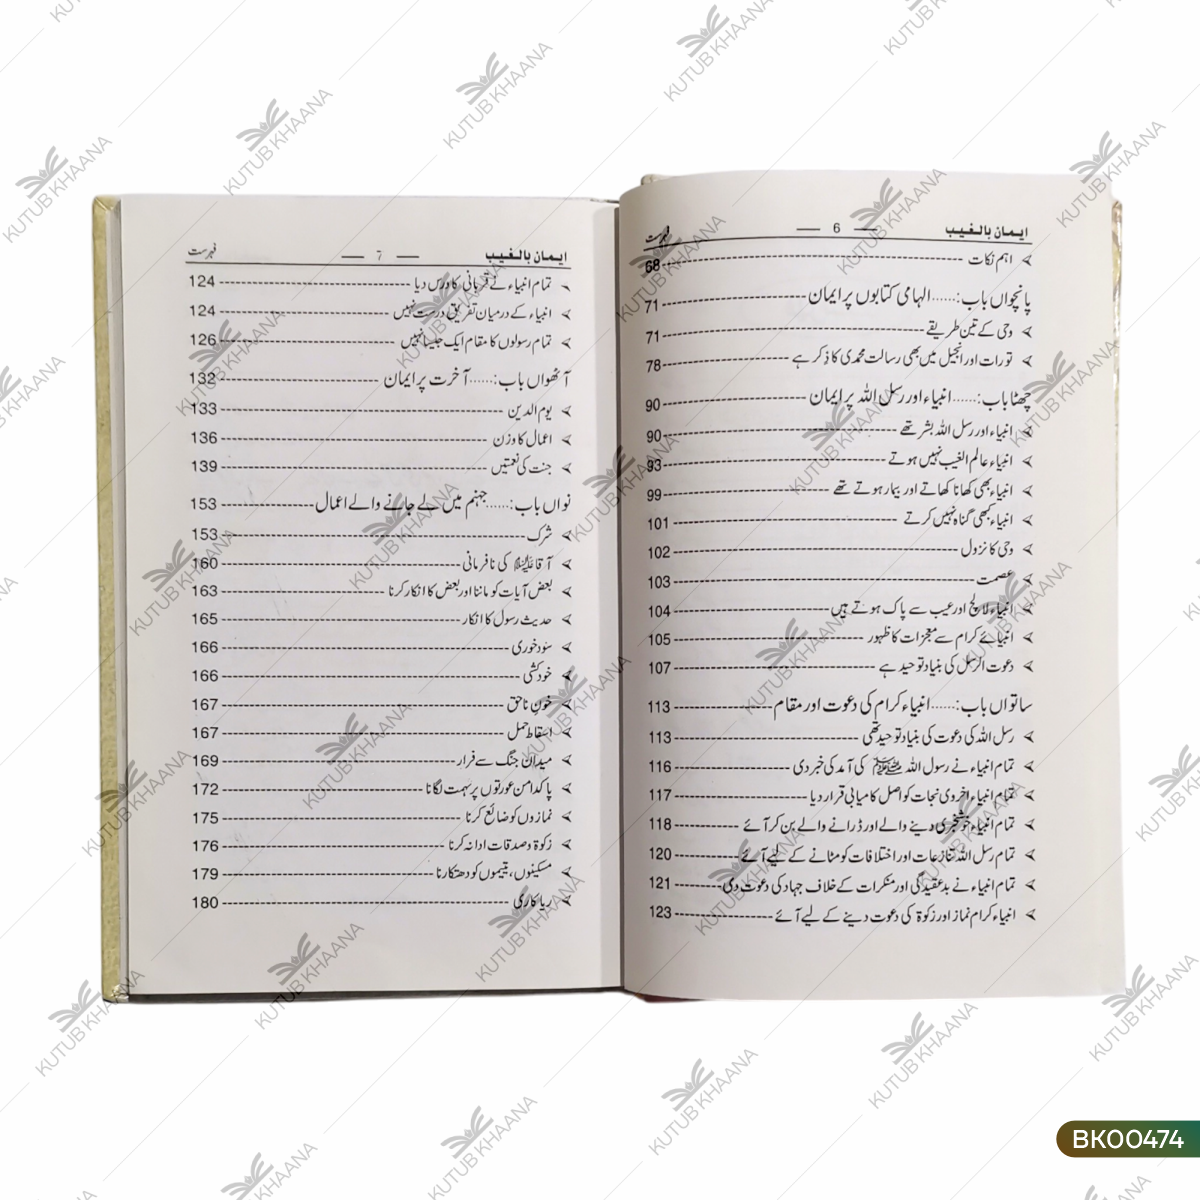 ایمان بالغیب — 6 — فہرست
اہم نکات 68
پانچواں باب:......الہامی کتابوں پر ایمان 71
وحی کے تین طریقے 71
تورات اور انجیل میں بھی رسالت محمدی کا ذکر ہے 78
چھٹا باب:......انبیاء اور رسل اللہ پر ایمان 90
انبیاء اور رسل اللہ بشر تھے 90
انبیاء عالم الغیب نہیں ہوتے 93
انبیاء بھی کھانا کھاتے اور بیمار ہوتے تھے 99
انبیاء کبھی گناہ نہیں کرتے 101
وحی کا نزول 102
عصمت 103
انبیاء لالچ اور عیب سے پاک ہوتے ہیں 104
انبیائے کرام سے معجزات کا ظہور 105
دعوت الرسل کی بنیاد توحید ہے 107
ساتواں باب:......انبیاء کرام کی دعوت اور مقام 113
رسل اللہ کی دعوت کی بنیاد توحید تھی 113
تمام انبیاء نے رسول اللہ ﷺ کی آمد کی خبر دی 116
تمام انبیاء اخروی نجات کو اصل کامیابی قرار دیا 117
تمام انبیاء خوشخبری دینے والے اور ڈرانے والے بن کر آئے 118
تمام رسل اللہ تنازعات اور اختلافات کو مٹانے کے لیے آئے 120
تمام انبیاء نے بدعقیدگی اور منکرات کے خلاف جہاد کی دعوت دی 121
انبیاء کرام نماز اور زکوۃ کی دعوت دینے کے لیے آئے 123
ایمان بالغیب — 7 — فہرست
تمام انبیاء نے قربانی کا درس دیا 124
انبیاء کے درمیان تفریق درست نہیں 124
تمام رسولوں کا مقام ایک جیسا نہیں 126
آٹھواں باب:......آخرت پر ایمان 132
یوم الدین 133
اعمال کا وزن 136
جنت کی نعمتیں 139
نواں باب:......جہنم میں لے جانے والے اعمال 153
شرک 153
آقا ﷺ کی نافرمانی 160
بعض آیات کو ماننا اور بعض کا انکار کرنا 163
حدیث رسول کا انکار 165
سود خوری 166
خودکشی 166
خون ناحق 167
اسقاط حمل 167
میدان جنگ سے فرار 169
پاکدامن عورتوں پر تہمت لگانا 172
نمازوں کو ضائع کرنا 175
زکوۃ و صدقات ادا نہ کرنا 176
مسکینوں، یتیموں کو دھتکارنا 179
ریاکاری 180
KUTUB KHAANA
BK00474